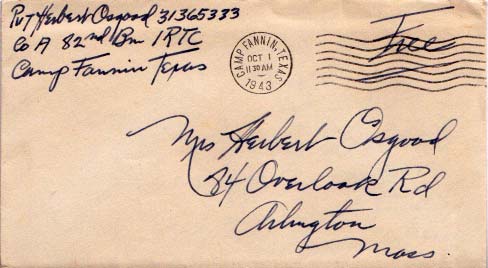 Pvt Herbert Osgood 31365333
Co A 82nd Bn IRTC
Camp Fannin Texas
CAMP FANNIN, TEXAS
OCT 1
11 30 AM
1943
Free
Mrs Herbert Osgood
84 Overlook Rd
Arlington
Mass.